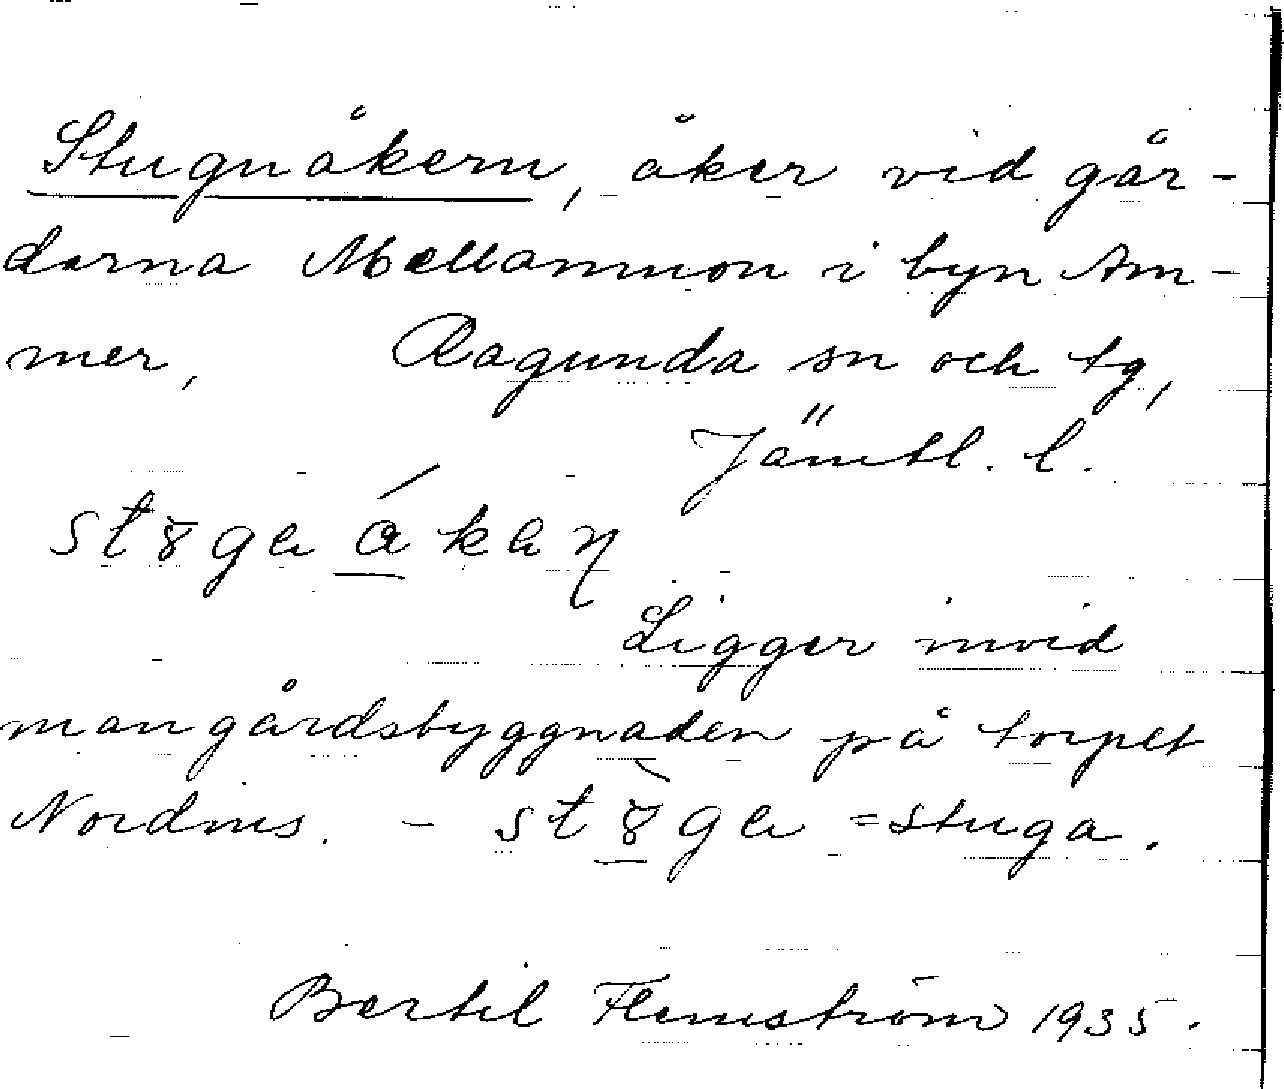 Stugnåkern, åker vid går-
darna Mellanmon i byn Am-
mer, Ragunda sn och tg,
Jämtl. l.
Ligger invid
mangårdsbyggnaden på torpet
Nordnis. - = stuga.
Bertil Flemström 1935.